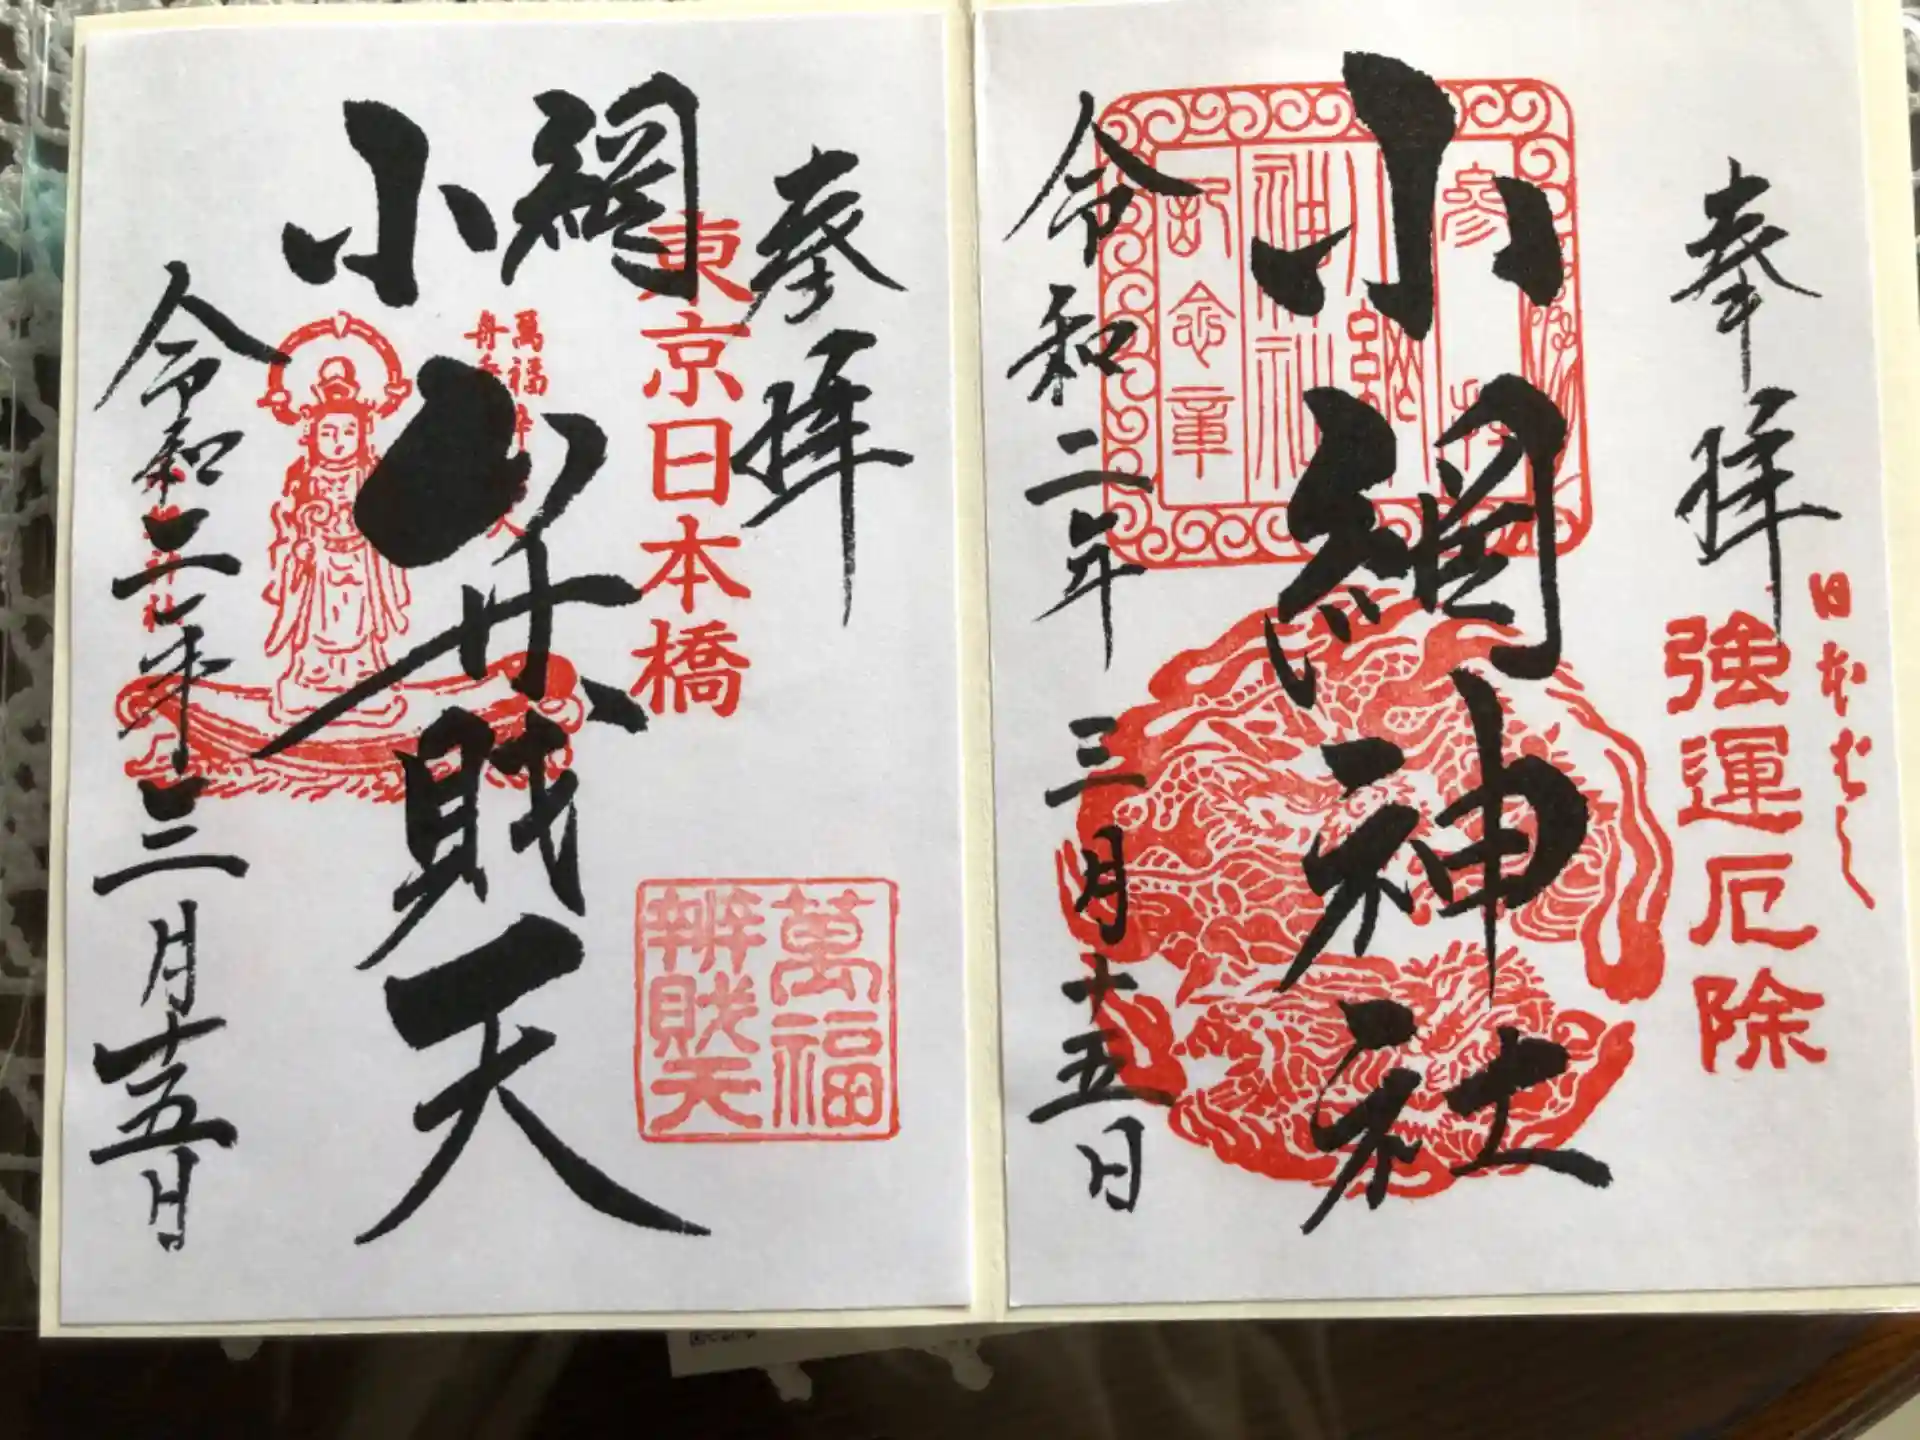 奉拝
日本ばし
強運厄除
参拝
小網
神社
記念章
小網神社
令和二年三月十五日
奉拝
東京日本橋
萬福
辨財天
小網山
弁財天
令和二年三月十五日